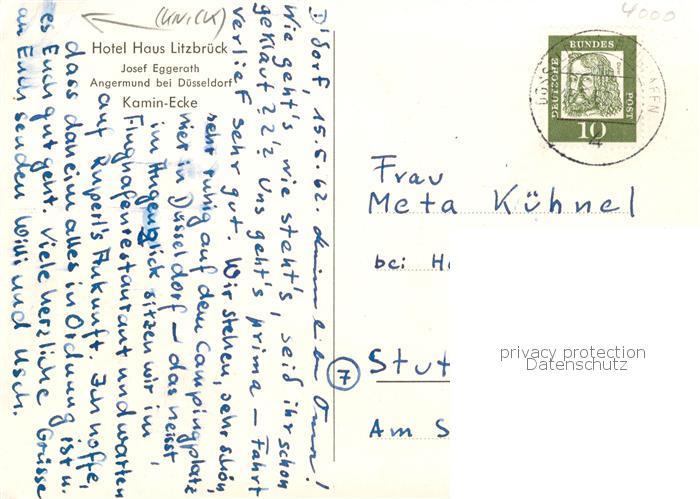 (KNICK)
4000
Hotel Haus Litzbrück
Josef Eggerath
Angermund bei Düsseldorf
Kamin-Ecke
D'dorf, 15.5.62.
Wie geht's, wie steht's, seid ihr schon
geklaut??? Uns geht's prima – Fahrt
verlief sehr gut. Wir stehen, sehr schön,
sehr ruhig auf dem Campingplatz
hier in Düsseldorf – das heisst,
im Augenblick sitzen wir im
Flughafenrestaurant und warten
auf Ruperl's Ankunft. Ich hoffe,
dass daheim alles in Ordnung ist u.
es Euch gut geht. Viele herzliche Grüsse
an Euch senden Willi und Usch.
DEUTSCHE BUNDES POST
10
Frau
Meta Kühnel
bei H
7
Stut
Am S
privacy protection
Datenschutz